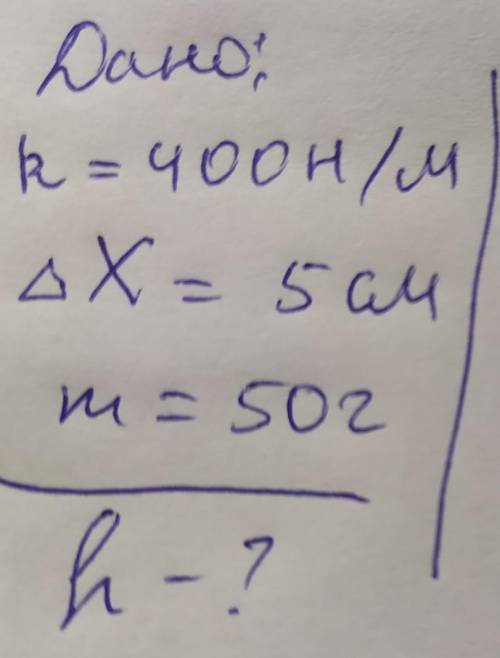 Дано:
k = 400Н/м
△X = 5 см
m = 50г
h - ?